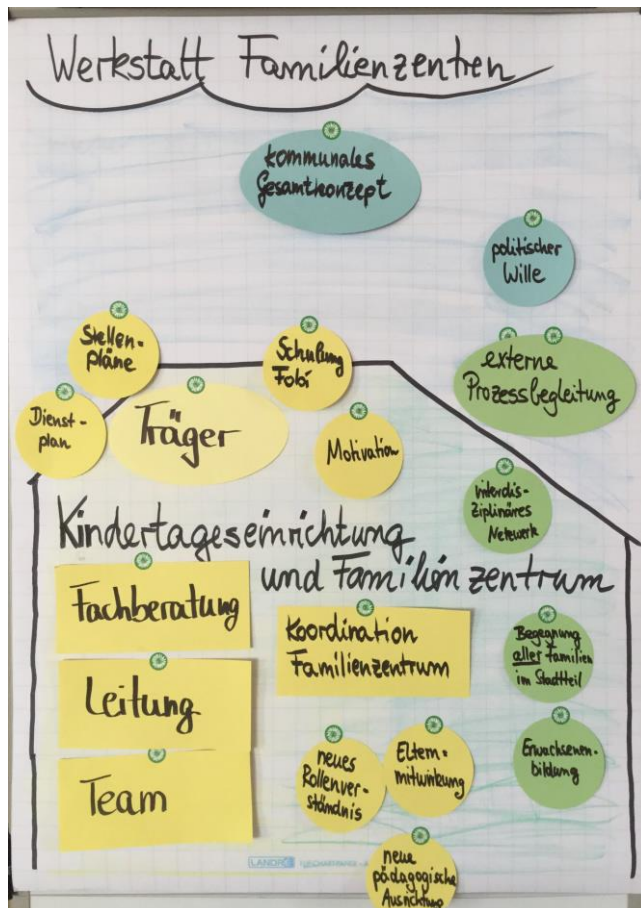 Werkstatt Familienzentren
kommunales
Gesamtkonzept
politischer
Wille
Stellen-
pläne
Schulung
Fobi
externe
Prozessbegleitung
Dienst-
plan
Träger
Motivation
Interdis-
ziplinäres
Netzwerk
Kindertageseinrichtung
und Familienzentrum
Fachberatung
Koordination
Familienzentrum
Begegnung
aller Familien
im Stadtteil
Leitung
neues
Rollenver-
ständnis
Eltern-
mitwirkung
Erwachsenen-
bildung
Team
neue
pädagogische
Ausrichtung
LANDRÉ